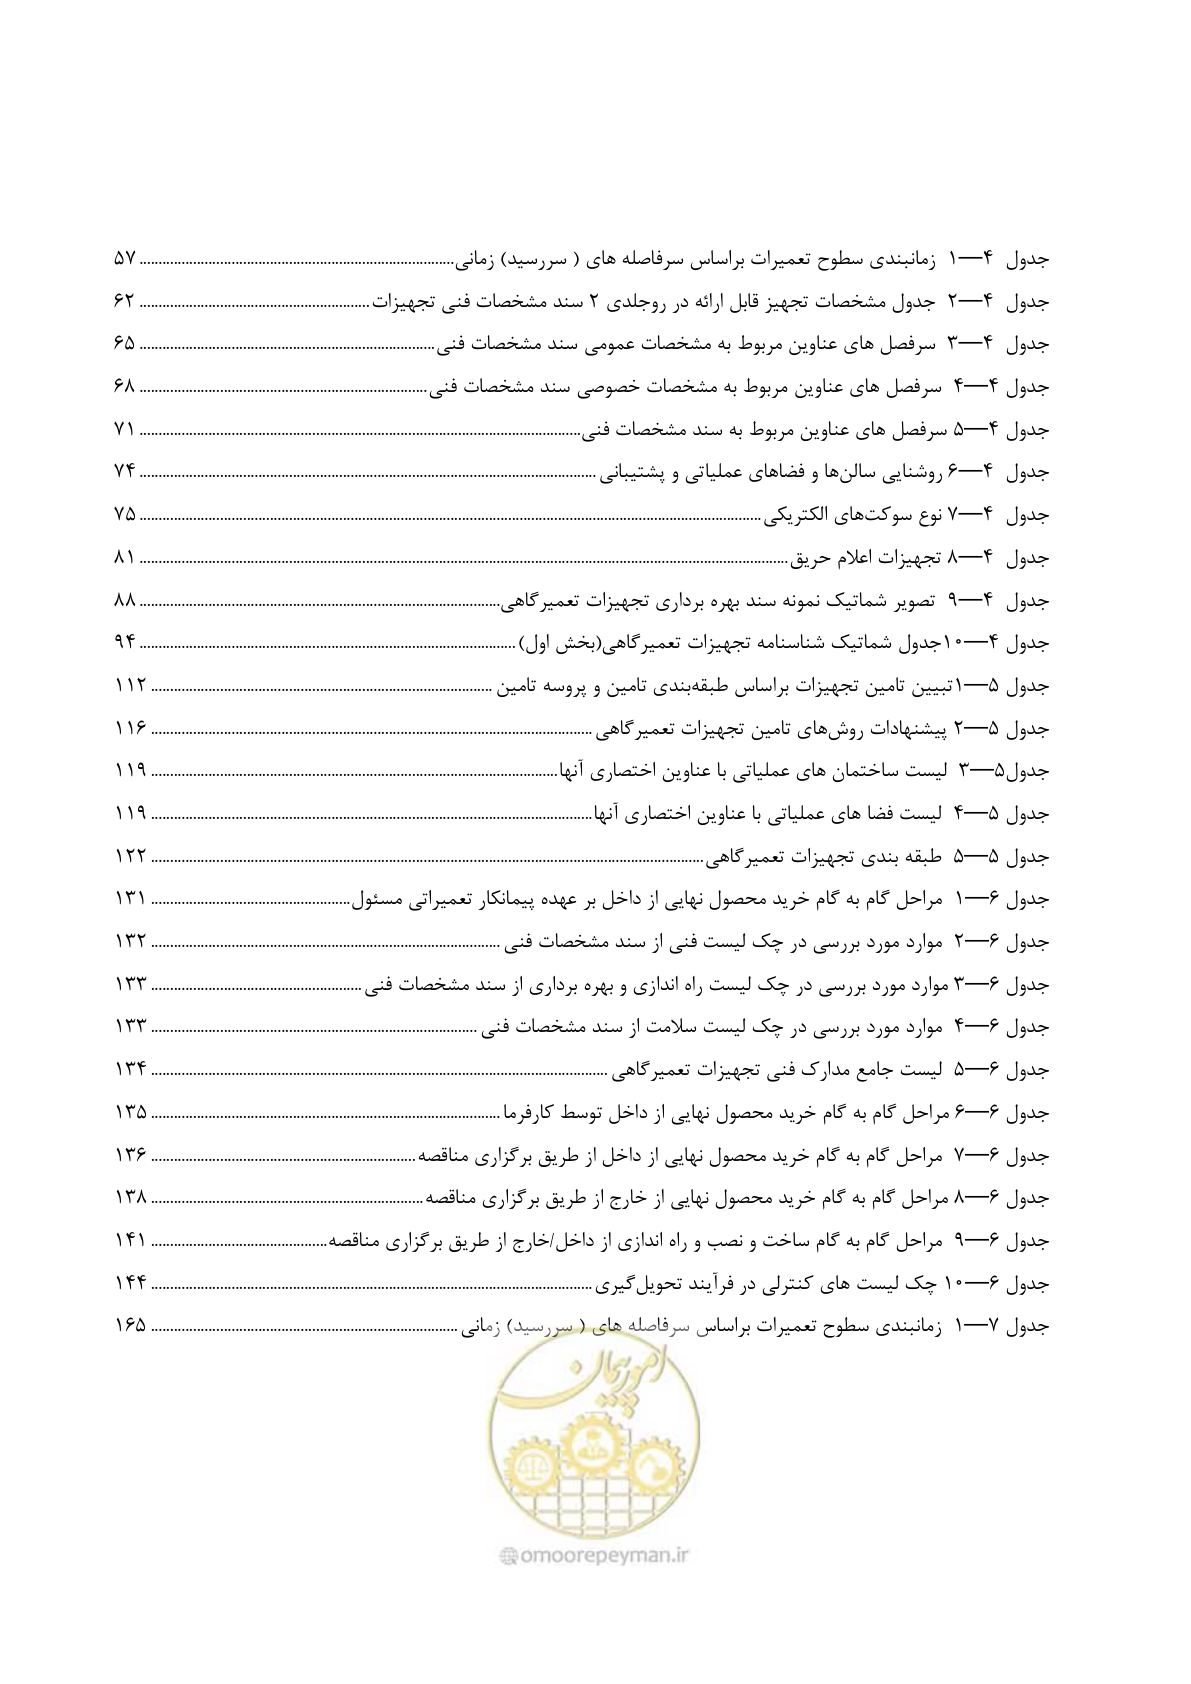 جدول ۴—۱ زمانبندی سطوح تعمیرات براساس سرفاصله های ( سررسید) زمانی ........ ۵۷
جدول ۴—۲ جدول مشخصات تجهیز قابل ارائه در روجلدی ۲ سند مشخصات فنی تجهیزات ........ ۶۲
جدول ۴—۳ سرفصل های عناوین مربوط به مشخصات عمومی سند مشخصات فنی ........ ۶۵
جدول ۴—۴ سرفصل های عناوین مربوط به مشخصات خصوصی سند مشخصات فنی ........ ۶۸
جدول ۴—۵ سرفصل های عناوین مربوط به سند مشخصات فنی ........ ۷۱
جدول ۴—۶ روشنایی سالن‌ها و فضاهای عملیاتی و پشتیبانی ........ ۷۴
جدول ۴—۷ نوع سوکت‌های الکتریکی ........ ۷۵
جدول ۴—۸ تجهیزات اعلام حریق ........ ۸۱
جدول ۴—۹ تصویر شماتیک نمونه سند بهره برداری تجهیزات تعمیرگاهی ........ ۸۸
جدول ۴—۱۰جدول شماتیک شناسنامه تجهیزات تعمیرگاهی(بخش اول) ........ ۹۴
جدول ۵—۱تبیین تامین تجهیزات براساس طبقه‌بندی تامین و پروسه تامین ........ ۱۱۲
جدول ۵—۲ پیشنهادات روش‌های تامین تجهیزات تعمیرگاهی ........ ۱۱۶
جدول۵—۳ لیست ساختمان های عملیاتی با عناوین اختصاری آنها ........ ۱۱۹
جدول ۵—۴ لیست فضا های عملیاتی با عناوین اختصاری آنها ........ ۱۱۹
جدول ۵—۵ طبقه بندی تجهیزات تعمیرگاهی ........ ۱۲۲
جدول ۶—۱ مراحل گام به گام خرید محصول نهایی از داخل بر عهده پیمانکار تعمیراتی مسئول ........ ۱۳۱
جدول ۶—۲ موارد مورد بررسی در چک لیست فنی از سند مشخصات فنی ........ ۱۳۲
جدول ۶—۳ موارد مورد بررسی در چک لیست راه اندازی و بهره برداری از سند مشخصات فنی ........ ۱۳۳
جدول ۶—۴ موارد مورد بررسی در چک لیست سلامت از سند مشخصات فنی ........ ۱۳۳
جدول ۶—۵ لیست جامع مدارک فنی تجهیزات تعمیرگاهی ........ ۱۳۴
جدول ۶—۶ مراحل گام به گام خرید محصول نهایی از داخل توسط کارفرما ........ ۱۳۵
جدول ۶—۷ مراحل گام به گام خرید محصول نهایی از داخل از طریق برگزاری مناقصه ........ ۱۳۶
جدول ۶—۸ مراحل گام به گام خرید محصول نهایی از خارج از طریق برگزاری مناقصه ........ ۱۳۸
جدول ۶—۹ مراحل گام به گام ساخت و نصب و راه اندازی از داخل/خارج از طریق برگزاری مناقصه ........ ۱۴۱
جدول ۶—۱۰ چک لیست های کنترلی در فرآیند تحویل‌گیری ........ ۱۴۴
جدول ۷—۱ زمانبندی سطوح تعمیرات براساس سرفاصله های ( سررسید) زمانی ........ ۱۶۵
امور پیمان
@omoorepeyman.ir